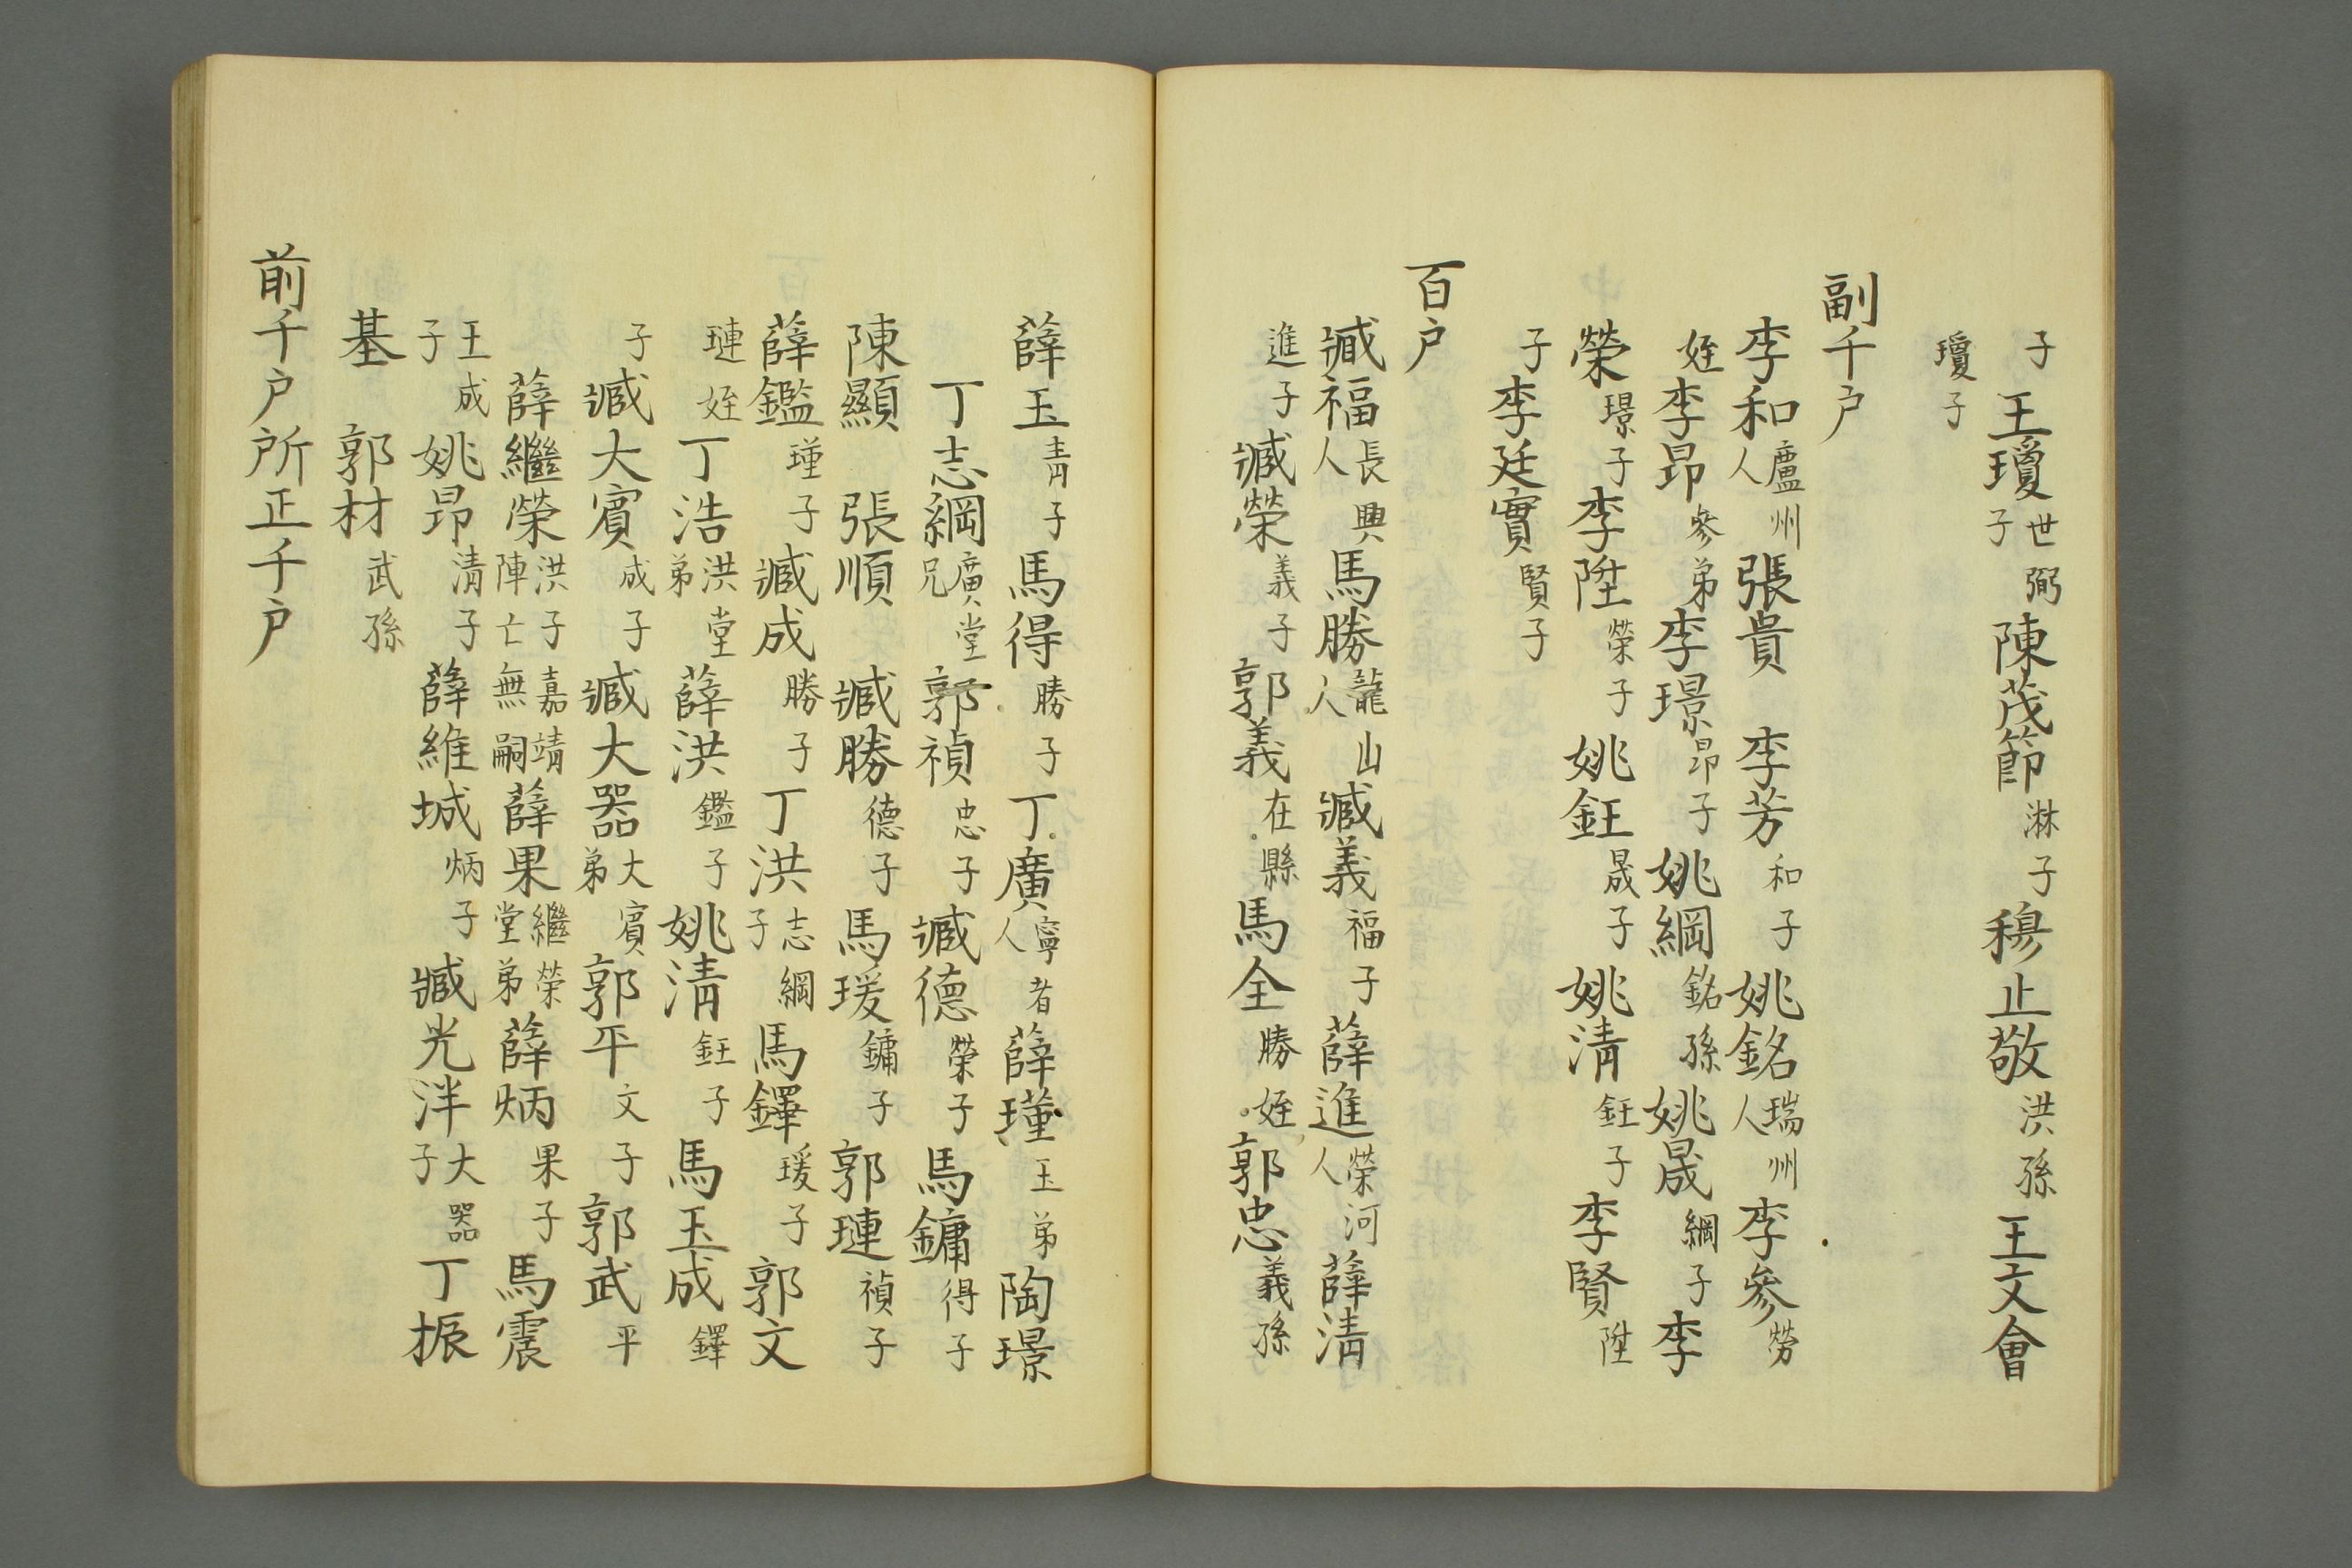 子王瓊世弼子陳茂節淋子穆止敬洪孫王文會
瓊子
副千户
李和盧州人張貴李芳和子姚銘瑞州人李參勞
姪李昂參弟李璟昂子姚綱銘孫姚晟綱子李
榮璟子李陞榮子姚鈺晟子姚清鈺子李賢陞
子李廷實賢子
百户
臧福長興人馬勝龍山人臧義福子薛進榮河人薛清
進子臧榮義子郭義在縣馬全勝姪郭忠義孫
薛玉青子馬得勝子丁廣寧者人薛瑾玉弟陶璟
丁志綱廣堂兄郭禎忠子臧德榮子馬鏞得子
陳顯張順臧勝德子馬瑗鏞子郭璉禎子
薛鑑瑾子臧成勝子丁洪志綱子馬鐸瑗子郭文
璉姪丁浩洪堂弟薛洪鑑子姚清鈺子馬玉成鐸
子臧大賓成子臧大器大賓弟郭平文子郭武平
薛繼榮洪子嘉靖陣亡無嗣薛果繼榮堂弟薛炳果子馬震
王成子姚昂清子薛維城炳子臧光泮大器子丁振
基郭材武孫
前千户所正千户